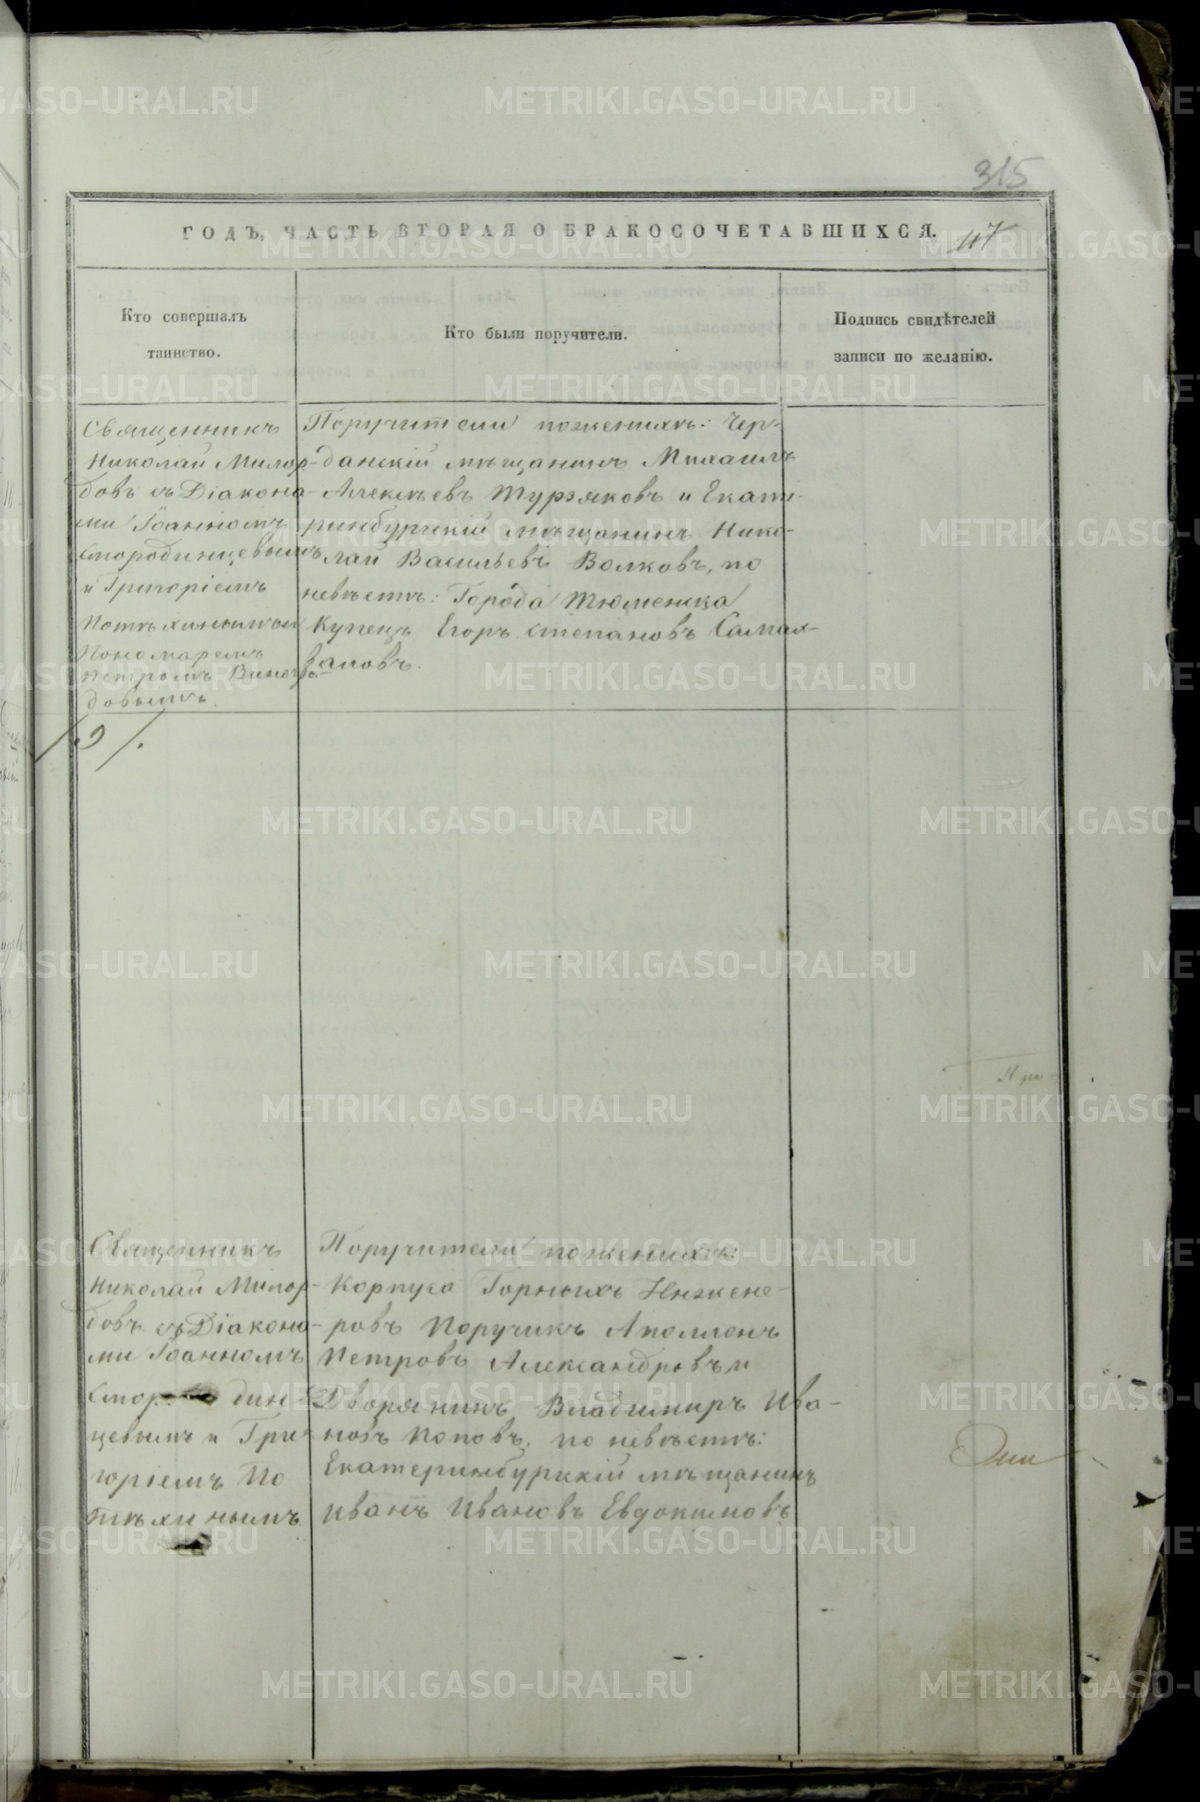 315
ГОДЪ, ЧАСТЬ ВТОРАЯ О БРАКОСОЧЕТАВШИХСЯ.
117
Кто совершалъ
таинство.
Кто были поручители.
Подпись свидѣтелей
записи по желанію.
Священникъ
Николай Милор-
довъ съ Діакона-
ми Іоанномъ
Смородинцевымъ
и Григоріемъ
Потѣхинымъ и
Пономаремъ
Петромъ Виногра-
довымъ.
Поручители по женихѣ: Чер-
данскій мѣщанинъ Михаилъ
Алексѣевъ Турзяковъ и Екате-
ринбургскій мѣщанинъ Нико-
лай Васильевъ Волковъ, по
невѣстѣ: Города Тюменска
Купецъ Егоръ Степановъ
Священникъ
Николай Милор-
довъ съ Діакона-
ми Іоанномъ
Смородин-
цевымъ и Гри-
горіемъ По
тѣхинымъ
Поручители по женихѣ:
Корпуса Горныхъ Инжене-
ровъ Поручикъ Аполлонъ
Петровъ Александровъ и
Дворянинъ Владимиръ Ива-
новъ Поповъ, по невѣстѣ:
Екатеринбургскій мѣщанинъ
Иванъ Ивановъ Евдокимовъ
METRIKI.GASO-URAL.RU